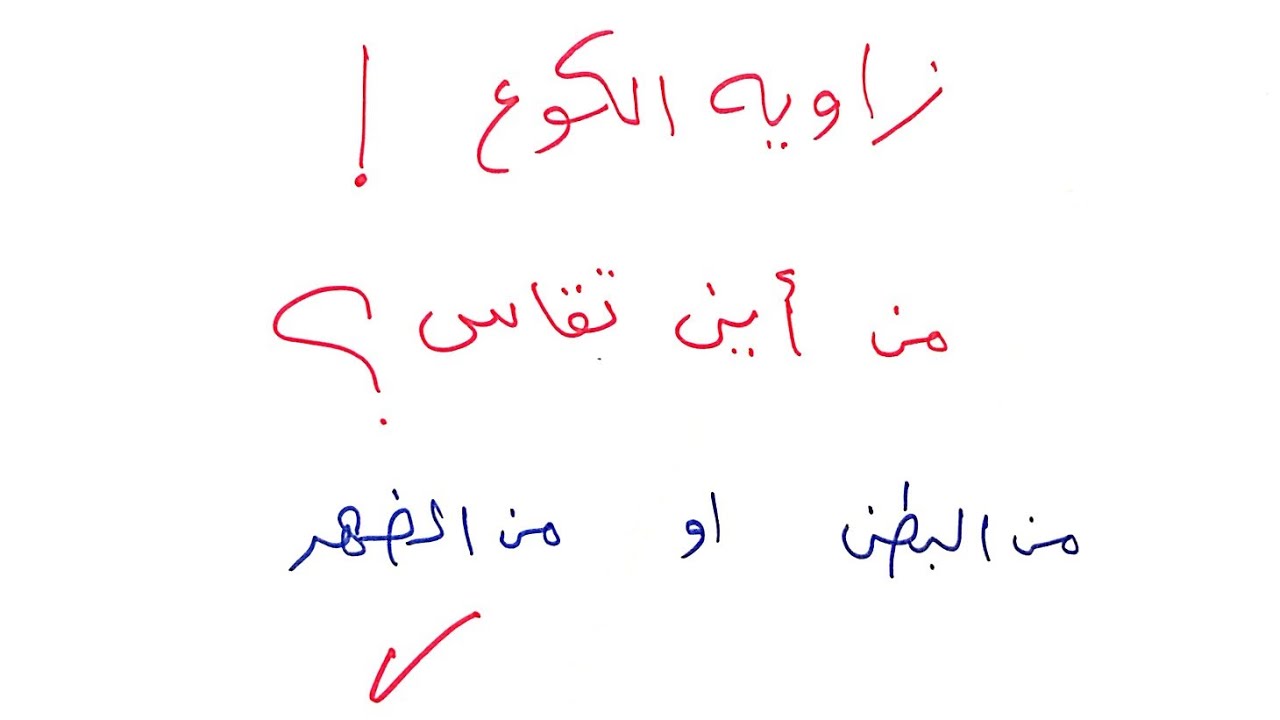 زاويه الكوع !
من أين تقاس ؟
من البطن او من الضهر